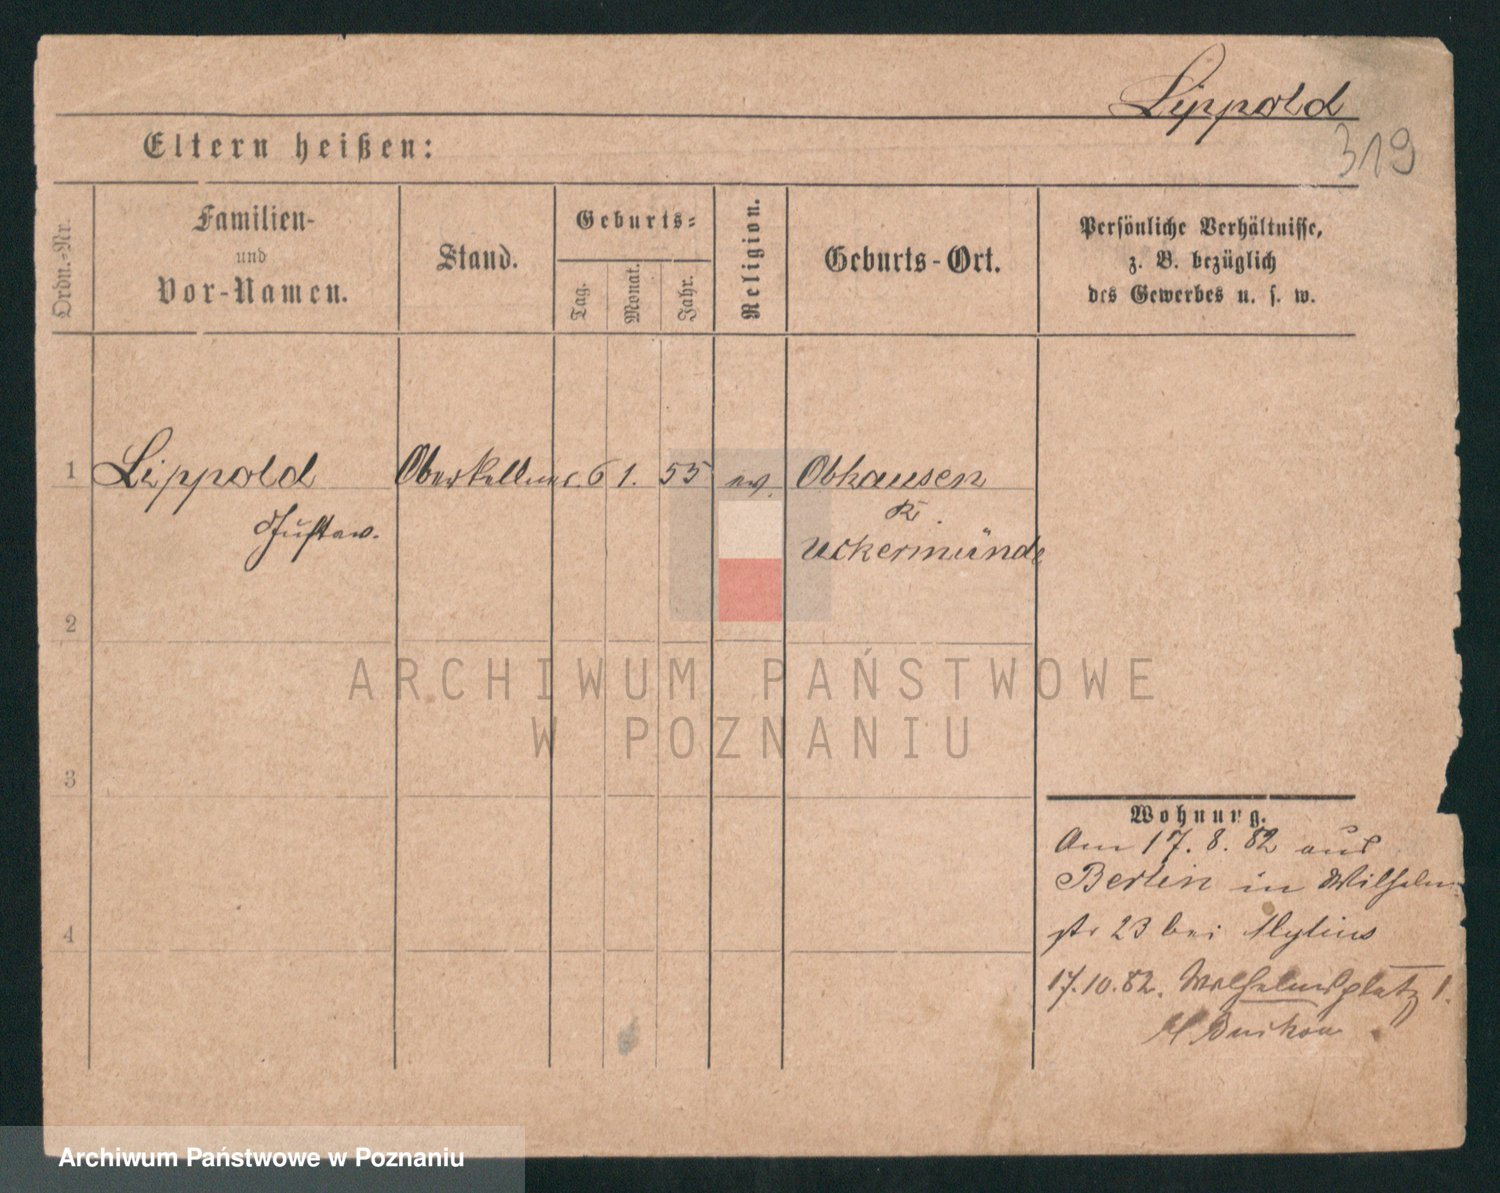 Lippold
319
Eltern heißen:
Ordn.-Nr.
Familien-
und
Vor-Namen.
Stand.
Geburts-
Tag.
Monat.
Jahr.
Religion.
Geburts-Ort.
Persönliche Verhältnisse,
z. B. bezüglich
des Gewerbes u. s. w.
1 Lippold Oberkellner. 6 1. 55 ev. Obhausen
Gustav. Kr.
Uckermünde
2
3
4
ARCHIWUM PAŃSTWOWE
W POZNANIU
Wohnung.
Am 17. 8. 82 aus
Berlin in Wilhelm
str 23 bei Mylius
17.10.82. Wilhelmsplatz 1.
Archiwum Państwowe w Poznaniu